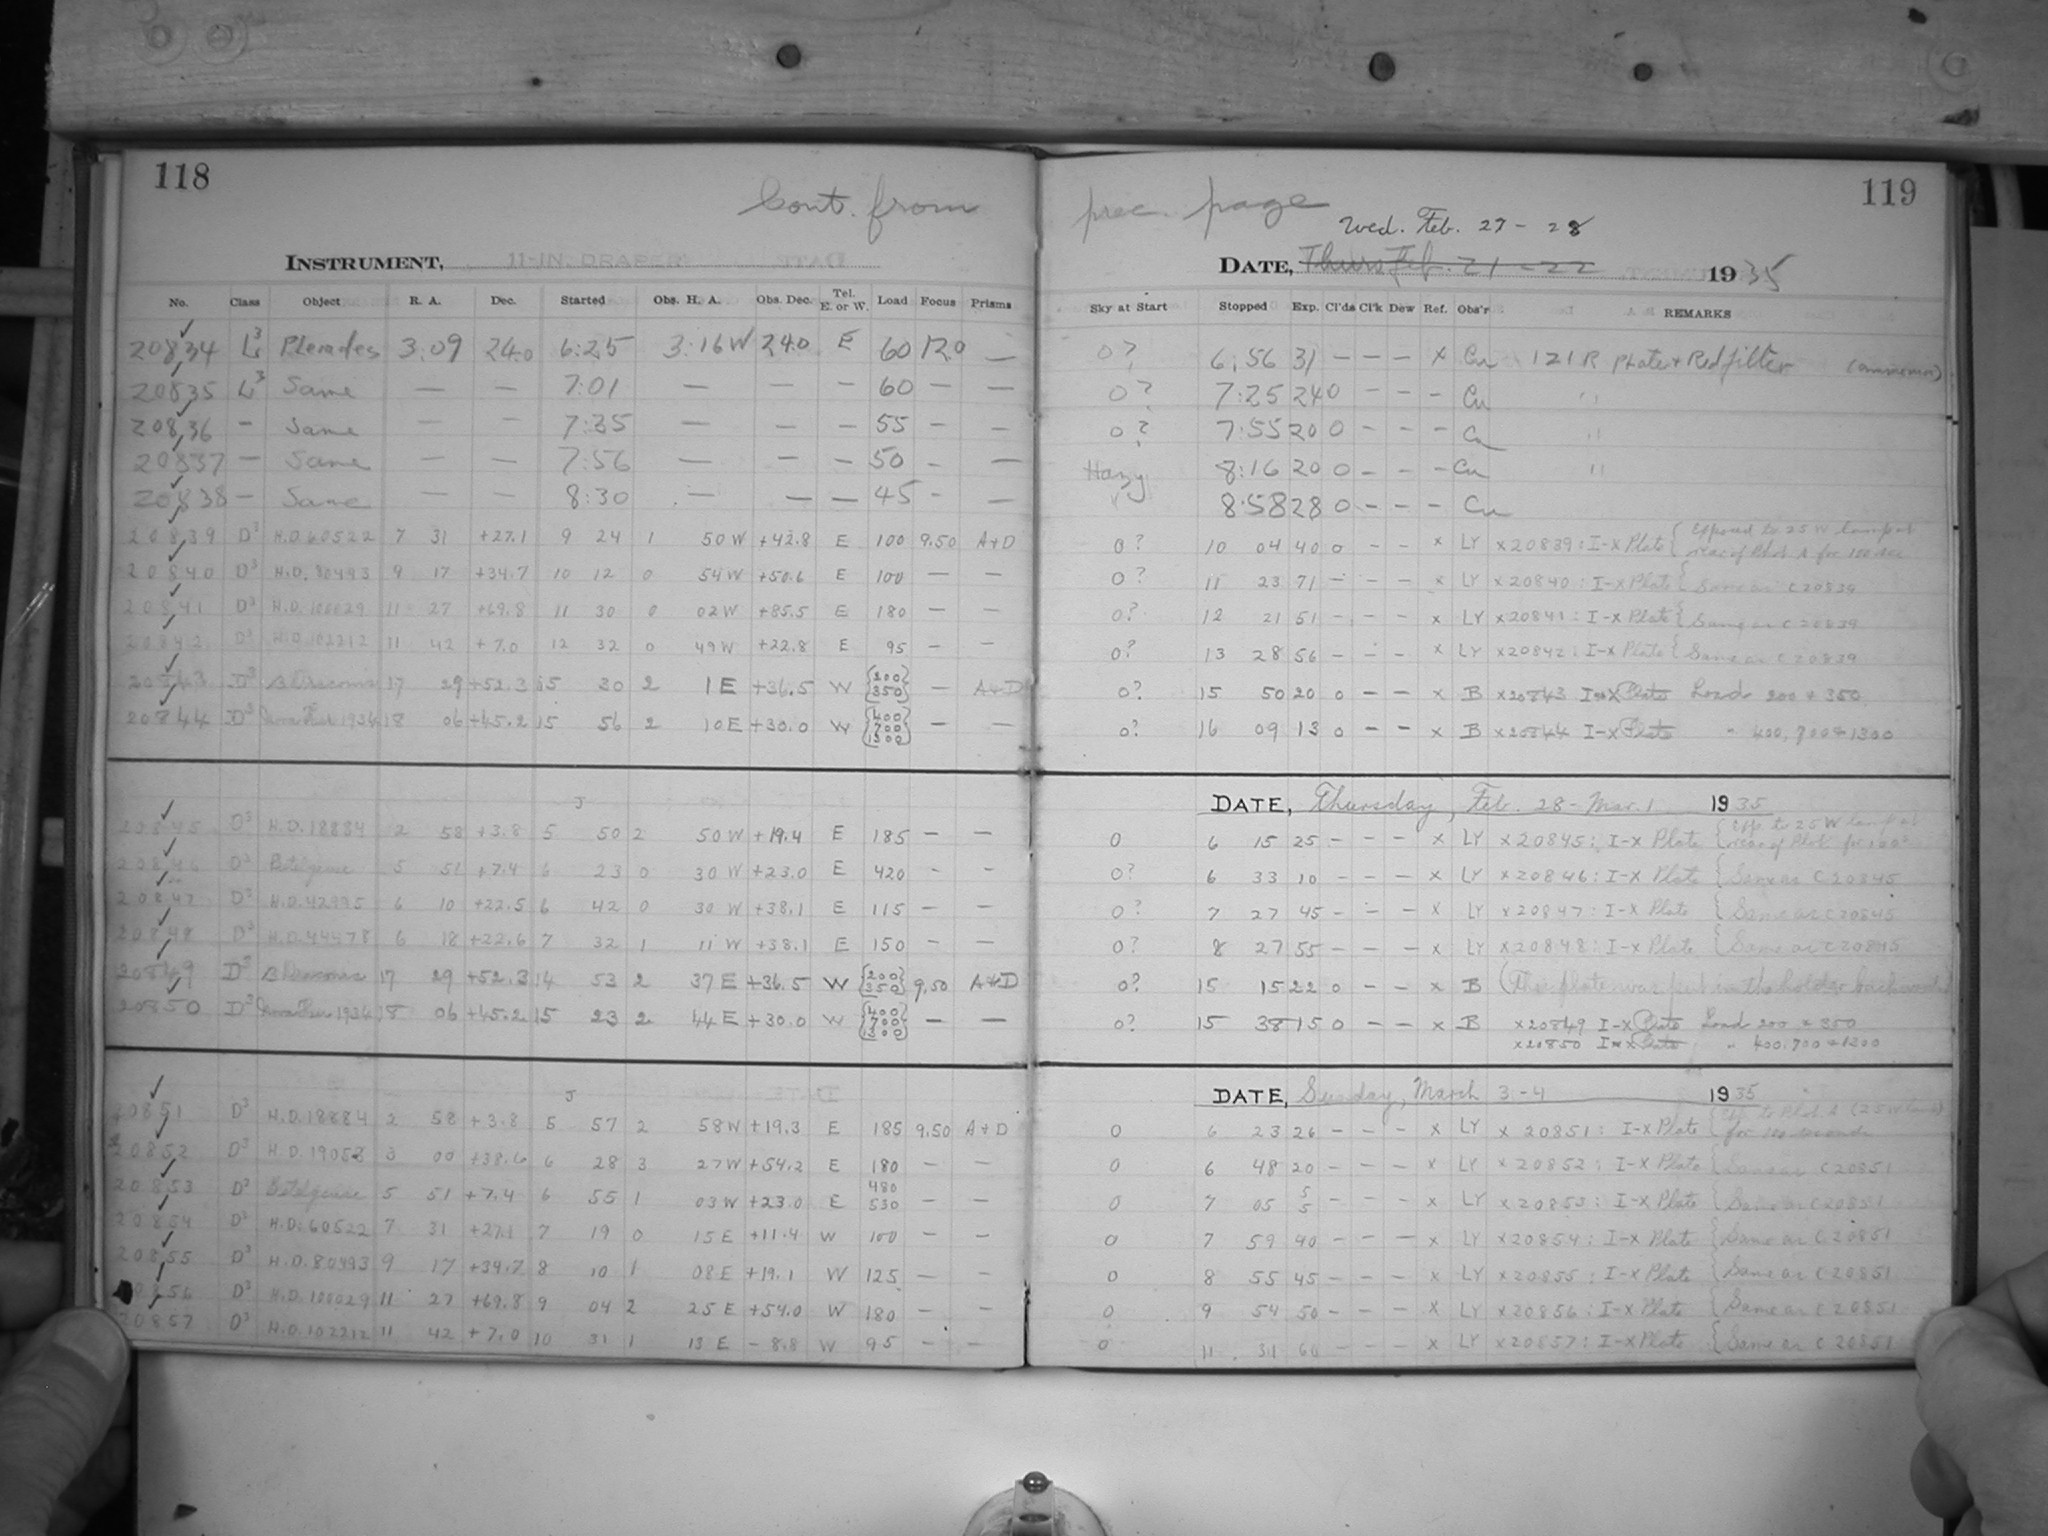 118
Cont. from prec. page
119
Wed. Feb. 27 - 28
INSTRUMENT, 11-IN. DRAPER
DATE, Thurs Feb. 21 - 22 1935
No. Class Object R. A. Dec. Started Obs. H. A. Obs. Dec. Tel. E. or W. Load Focus Prisms Sky at Start Stopped Exp. Cl'ds Cl'k Dew Ref. Obs'r REMARKS
20834 Pleiades 3.09 24.0 6:25 3:16 W 24.0 E 60 12.0 — 0? 6:56 31 — — — x Cu 121 R Plate + Red filter
20835 Same — — 7:01 — — — 60 — — 0? 7:25 24 0 — — — Cu "
20836 — Same — — 7:35 — — — 55 — — 0? 7:55 20 0 — — — Cu "
20837 — Same — — 7:56 — — — 50 — — Hazy 8:16 20 0 — — — Cu "
20838 — Same — — 8:30 — — — 45 — — 8:58 28 0 — — — Cu
20839 D3 H.D. 60522 7 31 +27.1 9 24 1 50 W +42.8 E 100 9.50 A+D 0? 10 04 40 0 — — x LY x20839: I-X Plate { Exposed to 25 W lamp at rear of Phot A for 100 sec
20840 D3 H.D. 80493 9 17 +34.7 10 12 0 54 W +50.6 E 100 — — 0? 11 23 71 — — — x LY x20840: I-X Plate { Same as C20839
20841 D3 H.D. 100029 11 27 +69.8 11 30 0 02 W +85.5 E 180 — — 0? 12 21 51 — — — x LY x20841: I-X Plate { Same as C20839
20842 D3 H.D. 102212 11 42 +7.0 12 32 0 49 W +22.8 E 95 — — 0? 13 28 56 — — — x LY x20842: I-X Plate { Same as C20839
20843 D3 β Draconis 17 29 +52.3 15 30 2 1 E +36.5 W {200 350} — A+D 0? 15 50 20 0 — — x B x20843 I-X Plate Load 200 + 350
20844 D3 Nova Her 1934 18 06 +45.2 15 56 2 10 E +30.0 W {400 700 1300} — — 0? 16 09 13 0 — — x B x20844 I-X Plate " 400, 700 + 1300
DATE, Thursday, Feb. 28 - Mar. 1 1935
20845 D3 H.D. 18884 2 58 +3.8 5 50 2 50 W +19.4 E 185 — — 0 6 15 25 — — — x LY x20845: I-X Plate { Exp. to 25 W lamp at rear of Phot
20846 D3 Betelgeuse 5 51 +7.4 6 23 0 30 W +23.0 E 420 — — 0? 6 33 10 — — — x LY x20846: I-X Plate { Same as C20845
20847 D3 H.D. 42995 6 10 +22.5 6 42 0 30 W +38.1 E 115 — — 0? 7 27 45 — — — x LY x20847: I-X Plate { Same as C20845
20848 D3 H.D. 44478 6 18 +22.6 7 32 1 11 W +38.1 E 150 — — 0? 8 27 55 — — — x LY x20848: I-X Plate { Same as C20845
20849 D3 β Draconis 17 29 +52.3 14 53 2 37 E +36.5 W {200 350} 9.50 A+D 0? 15 15 22 0 — — x B (This plate was put in the holder backwards)
20850 D3 Nova Her 1934 18 06 +45.2 15 23 2 44 E +30.0 W {400 700 1300} — — 0? 15 38 15 0 — — x B x20849 I-X Plate Load 200 + 350
x20850 I-X Plate " 400, 700 + 1300
DATE, Sunday, March 3 - 4 1935
20851 D3 H.D. 18884 2 58 +3.8 5 57 2 58 W +19.3 E 185 9.50 A+D 0 6 23 26 — — — x LY x 20851: I-X Plate { for 100 seconds
20852 D3 H.D. 19058 3 00 +38.6 6 28 3 27 W +54.2 E 180 — — 0 6 48 20 — — — x LY x 20852: I-X Plate { Same as C20851
20853 D3 Betelgeuse 5 51 +7.4 6 55 1 03 W +23.0 E 480 530 — — 0 7 05 5 5 — — — x LY x 20853: I-X Plate { Same as C20851
20854 D3 H.D. 60522 7 31 +27.1 7 19 0 15 E +11.4 W 100 — — 0 7 59 40 — — — x LY x20854: I-X Plate { Same as C20851
20855 D3 H.D. 80493 9 17 +34.7 8 10 1 08 E +19.1 W 125 — — 0 8 55 45 — — — x LY x20855: I-X Plate { Same as C20851
20856 D3 H.D. 100029 11 27 +69.8 9 04 2 25 E +54.0 W 180 — — 0 9 54 50 — — — x LY x20856: I-X Plate { Same as C20851
20857 D3 H.D. 102212 11 42 +7.0 10 31 1 13 E -8.8 W 95 — — 0 11 31 60 — — — x LY x20857: I-X Plate { Same as C20851